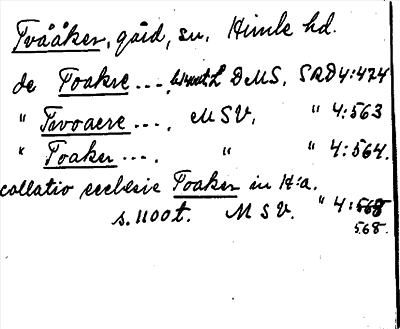 Tvååker, gård, sn, Himle hd.
de Toakre ---. DMS, SRD 4:424
" Tovoacre ---. MSV, " 4:563
" Toaker ---. " " 4:564.
collatio ecclesie Toaker in H:a.
s. 1100 t. MSV. " 4:568
568.